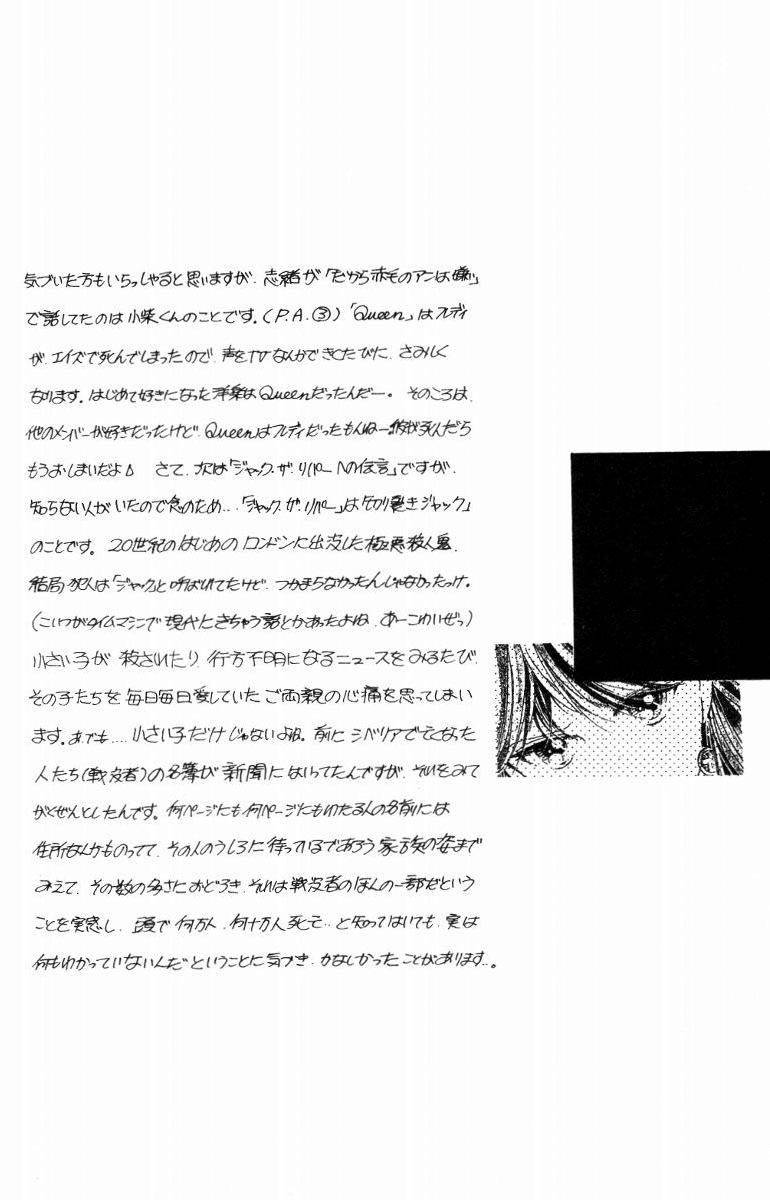 気づいた方もいらっしゃると思いますが、志緒が「だから赤毛のアンは嫌い」
で話してたのは小柴くんのことです。(P.A.③)「Queen」はフレディ
が、エイズで死んでしまったので、声をTVなんかできくたびに、さみしく
なります。はじめて好きになった洋楽はQueenだったんだー。そのころは、
他のメンバーが好きだったけど、Queenはフレディだったもんねー。彼が死んだら
もうおしまいだよ さて、次は「ジャック・ザ・リパーへの伝言」ですが、
知らない人がいたので念のため…「ジャック・ザ・リパー」は「切り裂きジャック」
のことです。20世紀のはじめのロンドンに出没した極悪殺人鬼、
結局犯人は「ジャック」と呼ばれてたけど、つかまらなかったんじゃなかったっけ。
(こいつがタイムマシンで現代にきちゃう話とかあったよね、あーこわいぜっ)
小さい子が殺されたり、行方不明になるニュースをみるたび、
その子たちを毎日毎日愛していたご両親の心痛を思ってしまい
ます。あ、でも……小さい子だけじゃないよね。前にシベリアで亡くなった
人たち(戦没者)の名簿が新聞にはいってたんですが、それをみて
がくぜんとしたんです。何ページにも何ページにもわたる人の名前には
住所なんかものってて、その人のうしろに待っているであろう家族の姿まで
みえて、その数の多さにおどろき、それは戦没者のほんの一部だという
ことを実感し、頭で何万人、何十万人死亡…と知ってはいても、実は
何もわかっていないんだということに気づき、かなしかったことがあります…。